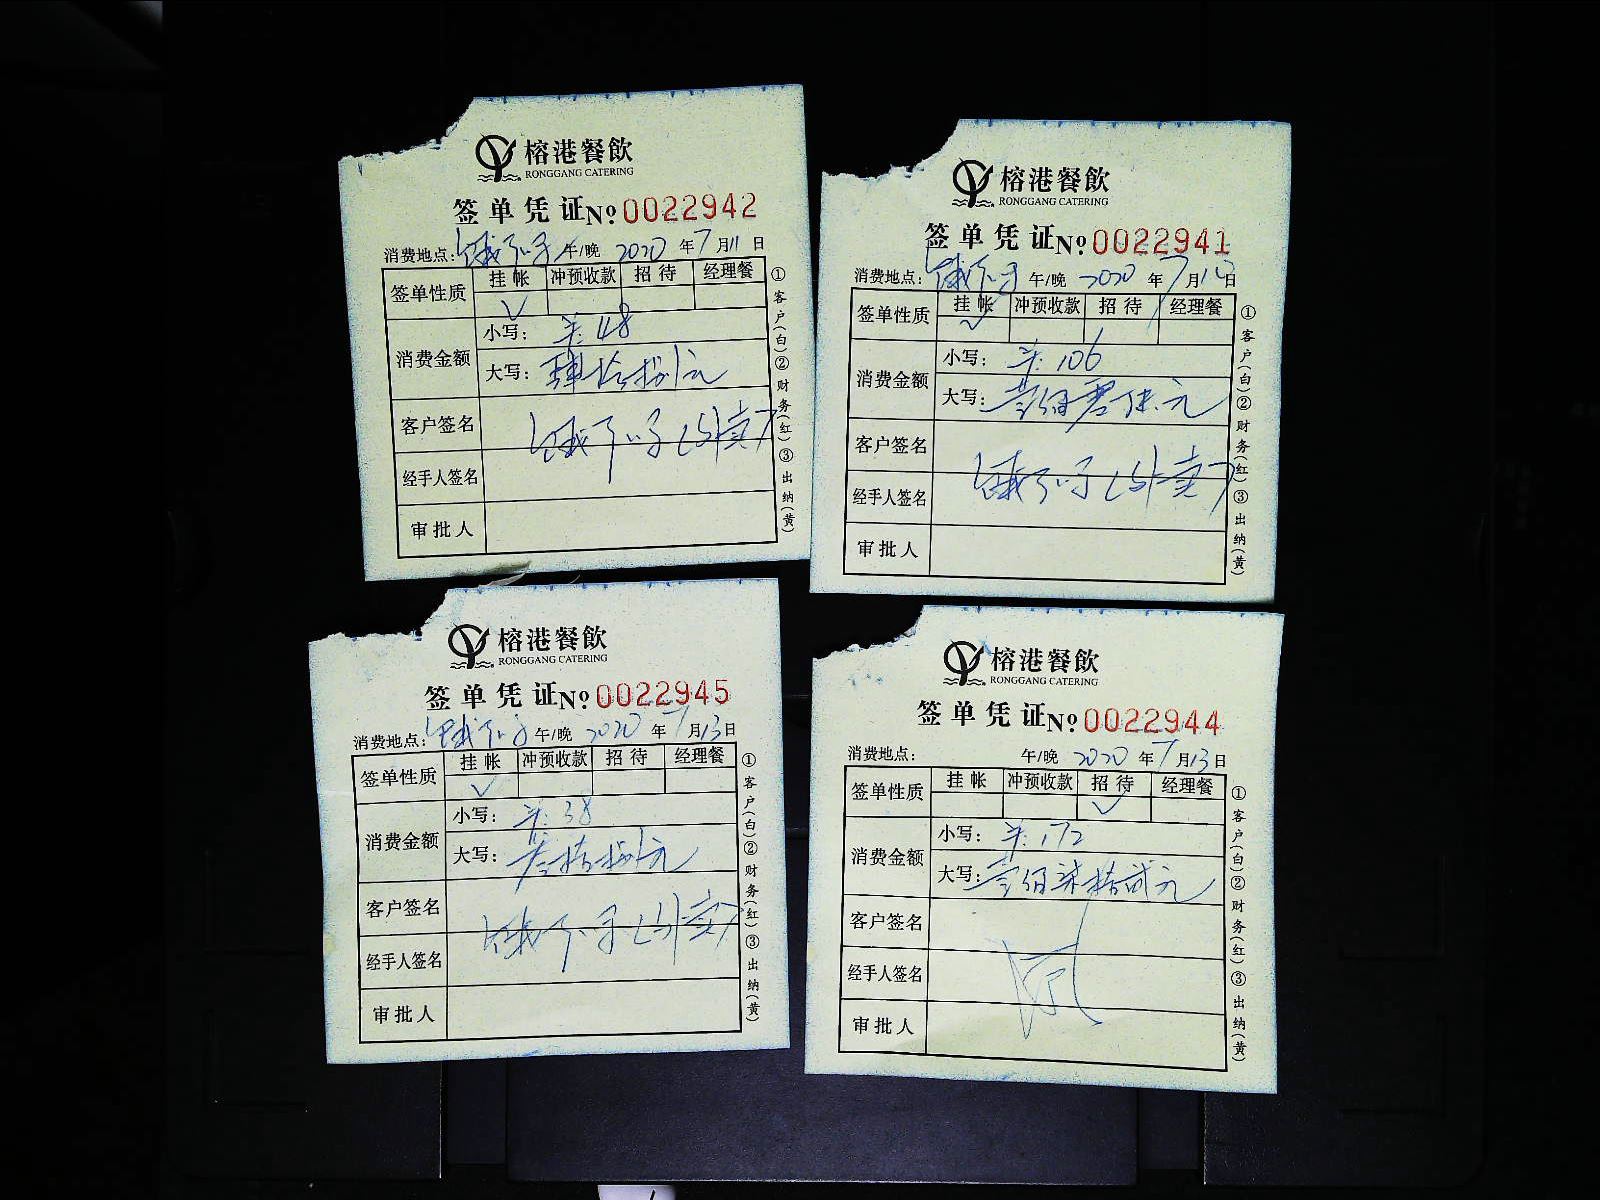 榕港餐飲
RONGGANG CATERING
签单凭证 № 0022942
消费地点：饿了么 午/晚 2020 年 7 月 11 日
签单性质 挂帐 冲预收款 招待 经理餐
✓
消费金额
小写： 羊: 48
大写： 肆拾捌元
客户签名 饿了么(外卖)
经手人签名
审批人
①客户(白)②财务(红)③出纳(黄)
榕港餐飲
RONGGANG CATERING
签单凭证 № 0022941
消费地点：饿了么 午/晚 2020 年 7 月 日
签单性质 挂帐 冲预收款 招待 经理餐
✓
消费金额
小写： 羊: 106
大写： 壹佰零陆元
客户签名
饿了么(外卖)
经手人签名
审批人
①客户(白)②财务(红)③出纳(黄)
榕港餐飲
RONGGANG CATERING
签单凭证 № 0022945
消费地点：饿了么 午/晚 2020 年 7 月 13 日
签单性质 挂帐 冲预收款 招待 经理餐
✓
消费金额
小写： 羊: 38
大写： 叁拾捌元
客户签名 饿了么(外卖)
经手人签名
审批人
①客户(白)②财务(红)③出纳(黄)
榕港餐飲
RONGGANG CATERING
签单凭证 № 0022944
消费地点： 午/晚 2020 年 7 月 13 日
签单性质 挂帐 冲预收款 招待 经理餐
✓
消费金额
小写： 羊: 172
大写： 壹佰柒拾贰元
客户签名
经手人签名
审批人
①客户(白)②财务(红)③出纳(黄)